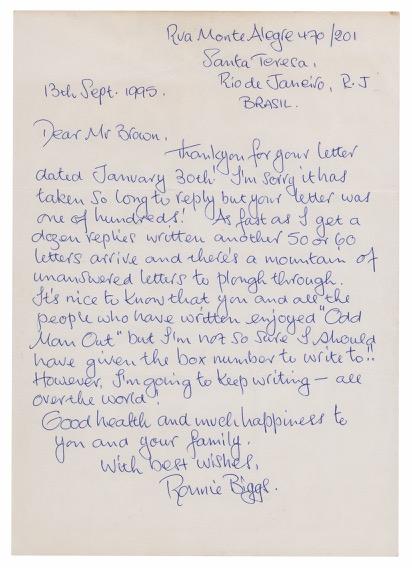 Rua Monte Alegre 470/201
Santa Teresa,
Rio de Janeiro, R.J
BRASIL.
13th Sept. 1995.
Dear Mr Brown,
Thankyou for your letter
dated January 30th! I'm sorry it has
taken so long to reply but your letter was
one of hundreds! As fast as I get a
dozen replies written another 50 or 60
letters arrive and there's a mountain of
unanswered letters to plough through.
It's nice to know that you and all the
people who have written enjoyed "Odd
Man Out" but I'm not so sure I should
have given the box number to write to!!
However, I'm going to keep writing — all
over the world!
Good health and much happiness to
you and your family.
With best wishes,
Ronnie Biggs.